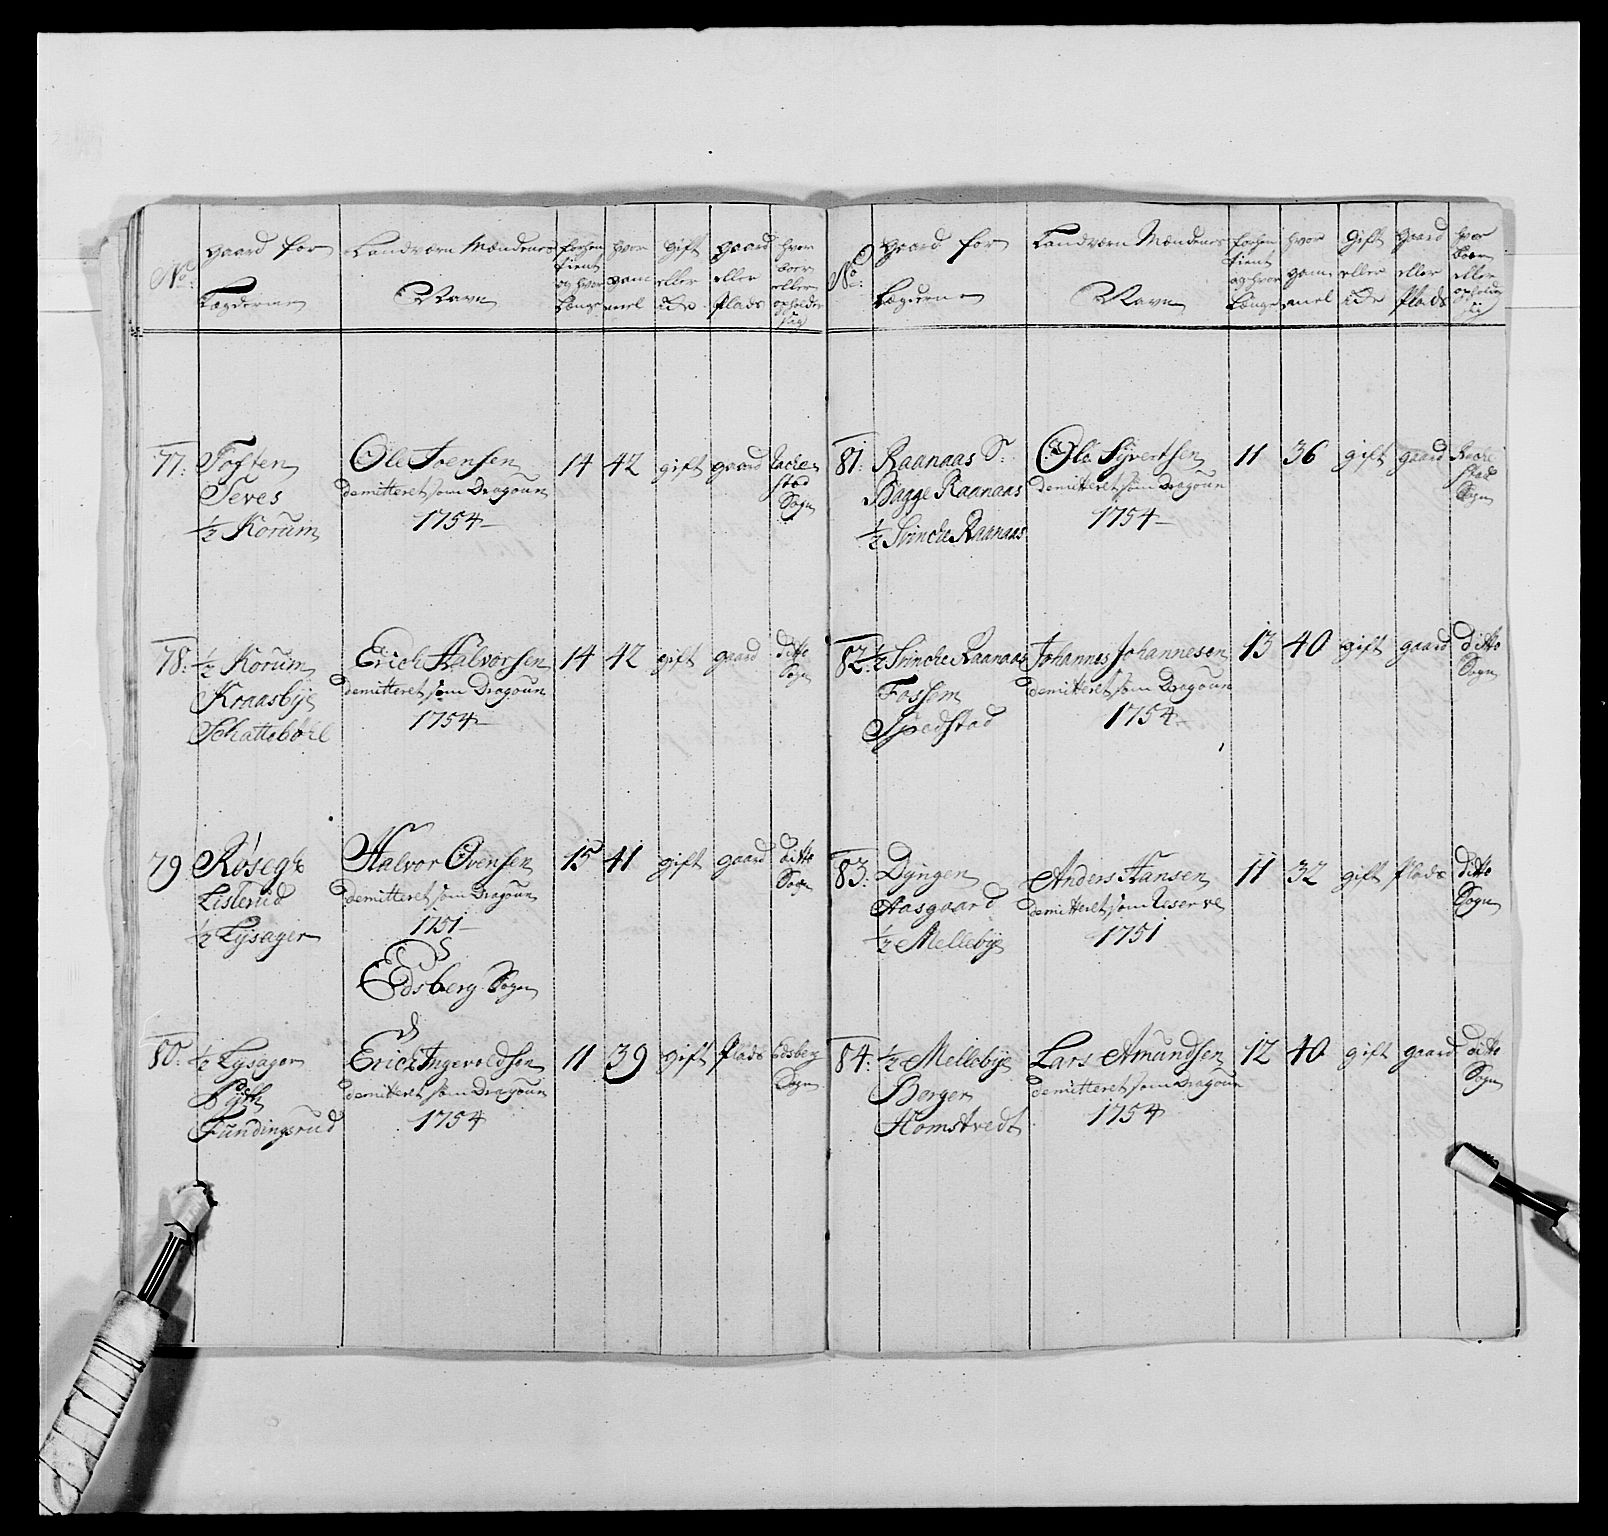 No:
gaard for
Lægderne
Landværn Mændenes
Navn
forhen
tient
og hvor
Længe
hvor
gam
mel
gift
eller
ude
gaard
eller
plads
hvor
boer
eller
opholder
sig
77: Toften Ole Joensen 14 42 gift gaard
Seves demitteret som Dragoun stad
½ Korum 1754 Sogn
78: ½ Korum Erich Halvorsen 14 42 gift gaard ditto
Kraasbÿe demitteret som Dragoun Sogn
Schattebøhl 1754
79 Røsegh Halvor Ovensen 15 41 gift gaard ditto
Listerud demitteret som Dragoun Sogn
½ Lÿsager 1751
Edsberg Sogn
80: ½ Lysager Erich Ingevoldsen 11 39 gift plads Edsberg
demitteret som Dragoun Sogn
Fundingsrud 1754
No:
gaard for
Lægderne
Landværn Mændenes
Navn
forhen
tient
og hvor
Længe
hvor
gam
mel
gift
eller
ude
gaard
eller
plads
hvor
boer
eller
opholder
sig
81: Raanaas S: Ole Sÿvertsen 11 36 gift gaard
Bagge Raanaas demitteret som Dragoun stad
½ Srinche Raanaas 1754 Sogn
82 ½ Srinche Raanaas Johannes Johannesen 13 40 gift gaard ditto
Fossem demitteret som Dragoun Sogn
Spedstad 1754
83: Dÿngen Anders Hansen 11 32 gift plads ditto
Aasgaard demitteret som Reserve Sogn
½ Mellebÿe 1751
84: ½ Mellebÿe Lars Amundsen 12 40 gift gaard ditto
Berger demitteret som Dragoun Sogn
Homstvedt 1754